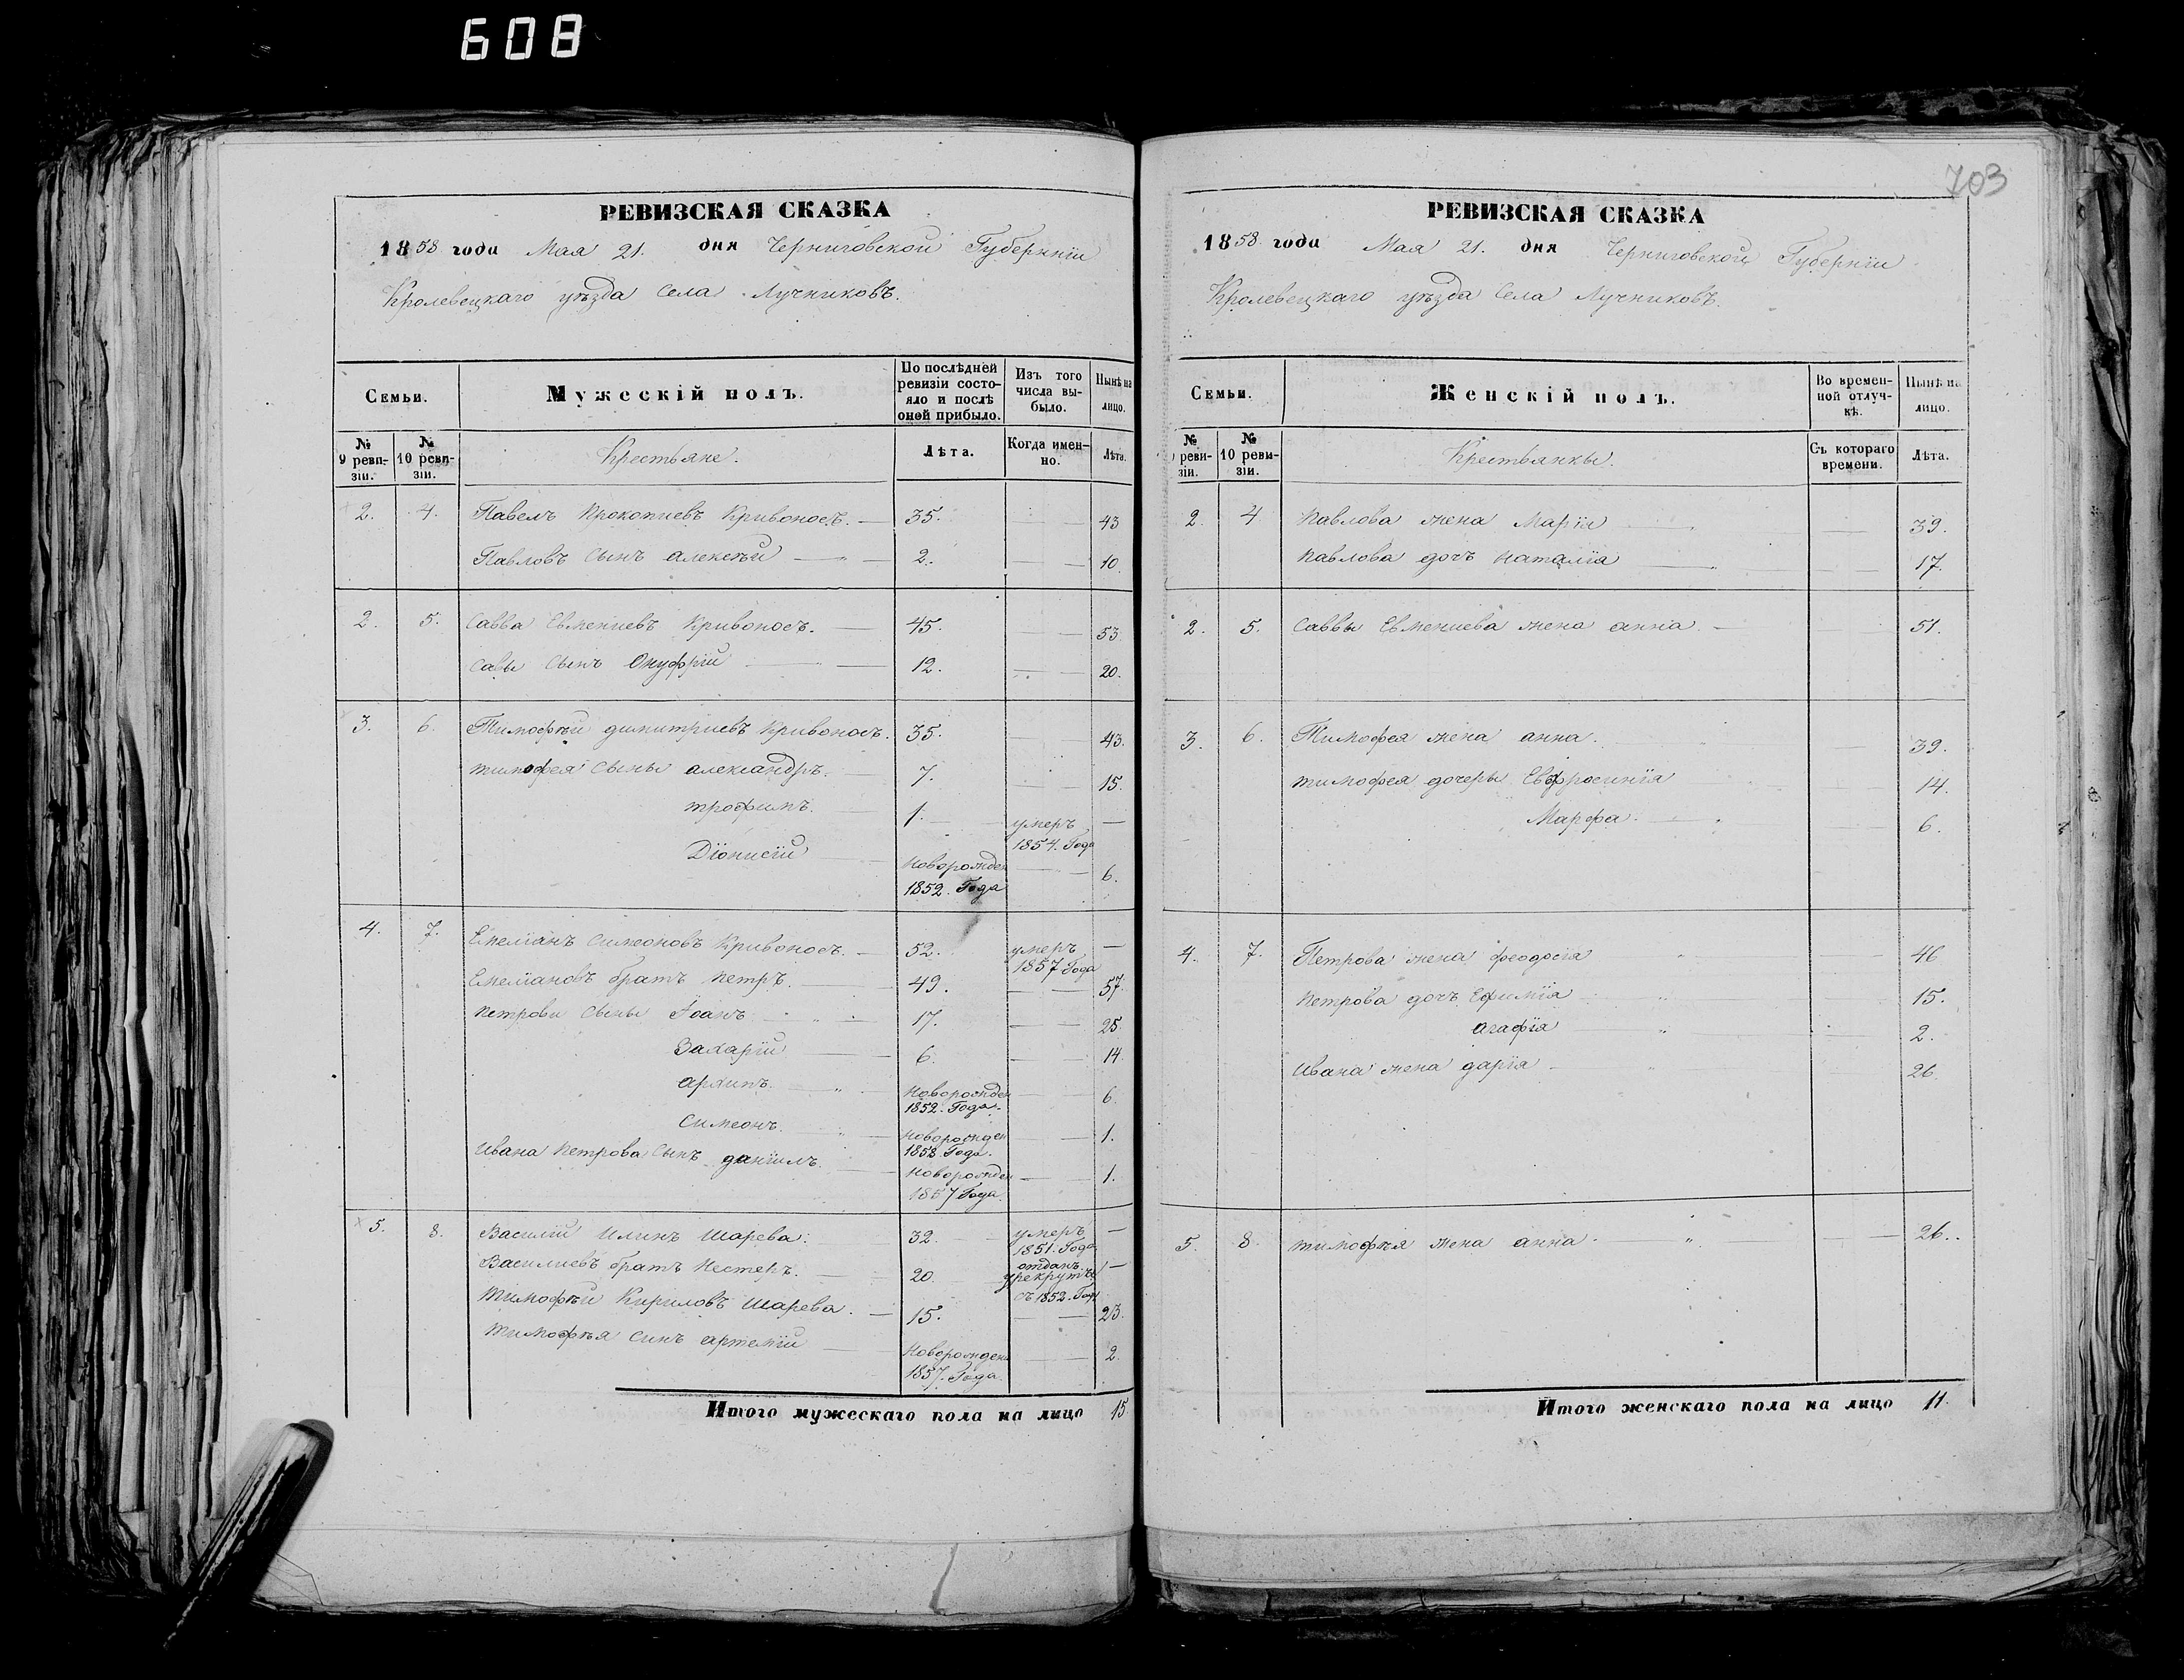 608
703
РЕВИЗСКАЯ СКАЗКА
1858 года Мая 21. дня Черниговской Губерніи
Кролевецкаго уѣзда Села Лучниковъ.
Семьи.
Мужескій полъ.
По послѣдней ревизіи состояло и послѣ оной прибыло.
Изъ того числа выбыло.
Нынѣ на лицо.
№ 9 ревизіи.
№ 10 ревизіи.
Крестьяне.
Лѣта.
Когда именно.
Лѣта.
2. 4. Павелъ Прокопиевъ Кривоносъ. 35. 43
Павловъ Сынъ алексѣй 2. 10.
2. 5. Савва Евмениевъ Кривоносъ. 45. 53.
Савы Сынъ Онуфрій 12. 20.
3. 6. Тимофѣй димитриевъ Кривоносъ. 35. 43.
тимофея Сыны александръ. 7. 15.
трофимъ. 1. умеръ 1854. Года
Діонисій Новорожден 1852. Года 6.
4. 7. Емеліанъ Симеоновъ Кривоносъ. 52. умеръ 1857 Года
Емеліановъ братъ петръ. 49. 57.
петрови Сыны Іоанъ 17. 25.
Захарій 6. 14.
архипъ. Новорожден 1852. Года. 6.
Симеонъ. Новорожден 1858. Года. 1.
Ивана петрова Сынъ даніилъ. Новорожден 1857 Года. 1.
5. 8. Василій Илинъ Шарева. 32. умеръ 1851. Года
Василиевъ братъ Нестеръ. 20. отданъ урекруты съ 1852. Год
Тимофѣй Кириловъ Шарева. 15. 23.
Тимофѣя синъ артемій Новорожден 1857. Года. 2.
Итого мужескаго пола на лицо 15
РЕВИЗСКАЯ СКАЗКА
1858 года Мая 21. дня Черниговской Губерніи
Кролевецкаго уѣзда Села Лучниковъ.
Семьи.
Женскій полъ.
Во временной отлучкѣ.
Нынѣ на лицо.
№ 9 ревизіи.
№ 10 ревизіи.
Крестьянкы.
Съ котораго времени.
Лѣта.
2. 4. Павлова жена Марія 39.
павлова дочъ наталія 17.
2. 5. Саввы Евмениева жена анна. 51.
3. 6. Тимофея жена анна. 39.
тимофея дочеры Евфросинія 14.
Марфа. 6.
4. 7. Петрова жена феодосія 46
петрова дочъ Ефимія 15.
агафія 2.
Ивана жена дарія 26.
5. 8. тимофѣя жена анна. 26.
Итого женскаго пола на лицо 11.